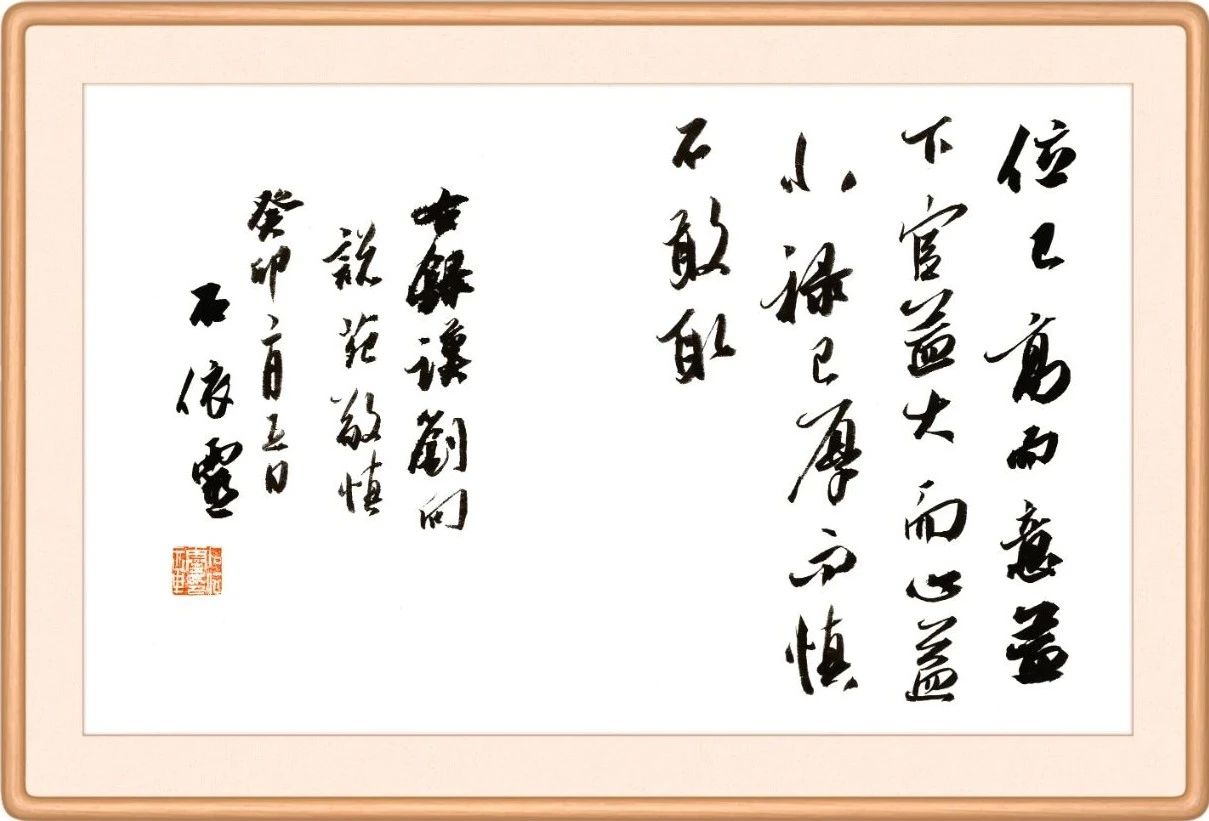 位已高而意益
下官益大而心益
小禄已厚而慎
不敢取
右録漢劉向
説苑敬慎
癸卯二月五日
石依靈